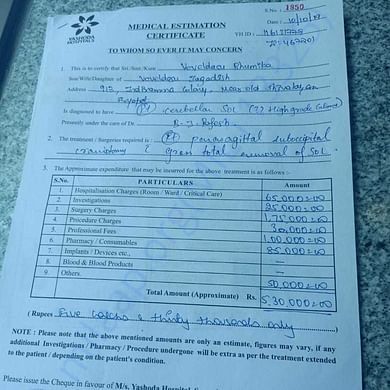 S.No. 1850
YASHODA
HOSPITALS
MEDICAL ESTIMATION
CERTIFICATE
Date : 10/10/
YH ID :
TO WHOM SO EVER IT MAY CONCERN
1. This is to certify that Sri./Smt./Kum Bhumika
Son/Wife/Daughter of Jagadish
Address 912, Indiramma Colony, Near old
Is diagnosed to have (L) cerebellar SOL (?) High grade
Presently under the care of Dr.
2. The treatment / Surgeries required is : suboccipital
craniotomy & gross total removal of SOL
3. The Approximate expenditure that may be incurred for the above treatment is as follows :-
S.No. PARTICULARS Amount
1. Hospitalisation Charges (Room / Ward / Critical Care) 65,000=00
2. Investigations 25,000=00
3. Surgery Charges 1,75,000=00
4. Procedure Charges 30,000=00
5. Professional Fees 1,00,000=00
6. Pharmacy / Consumables 85,000=00
7. Implants / Devices etc., —
8. Blood & Blood Products —
9. Others. 50,000=00
Total Amount (Approximate) Rs. 5,30,000=00
(Rupees Five Lakhs & thirty thousands only
NOTE : Please note that the above mentioned amounts are only an estimate, figures may vary, if any
additional Investigations / Pharmacy / Procedure undergone will be extra as per the treatment extended
to the patient / depending on the patient's condition.
Please issue the Cheque in favour of M/s, Yashoda